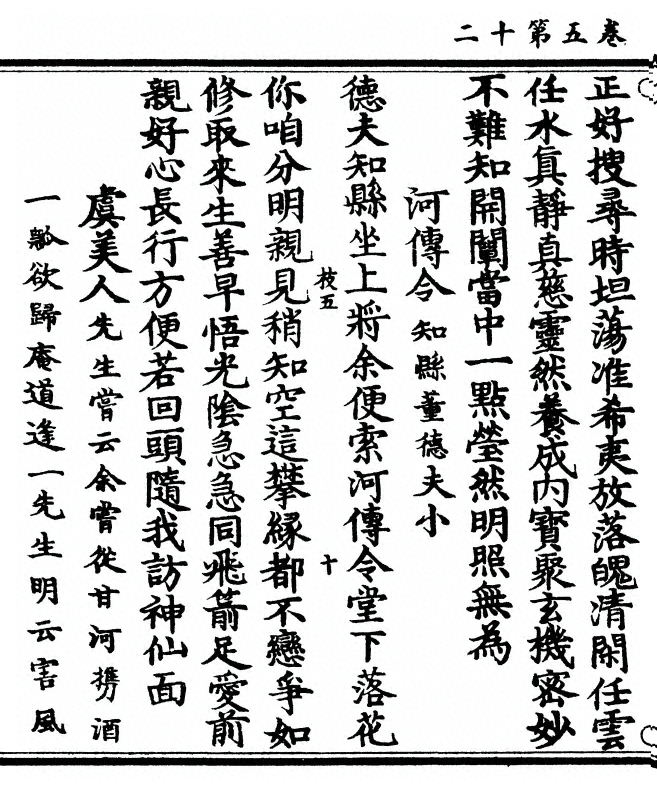 卷五第十二
正好搜尋時坦蕩准希夷放落魄清閑任雲
任水眞靜真慈靈然養成内寶聚玄機密妙
不難知開闡當中一點瑩然明照無為
河傳令知縣董德夫小
德夫知縣坐上將余便索河傳令堂下落花
枝五
十
你咱分明親見稍知空這攀緣都不戀爭如
修取來生善早悟光陰急急同飛箭足愛前
親好心長行方便若回頭隨我訪神仙面
虞美人先生嘗云余嘗從甘河携酒
一瓢欲歸庵道逢一先生明云害風